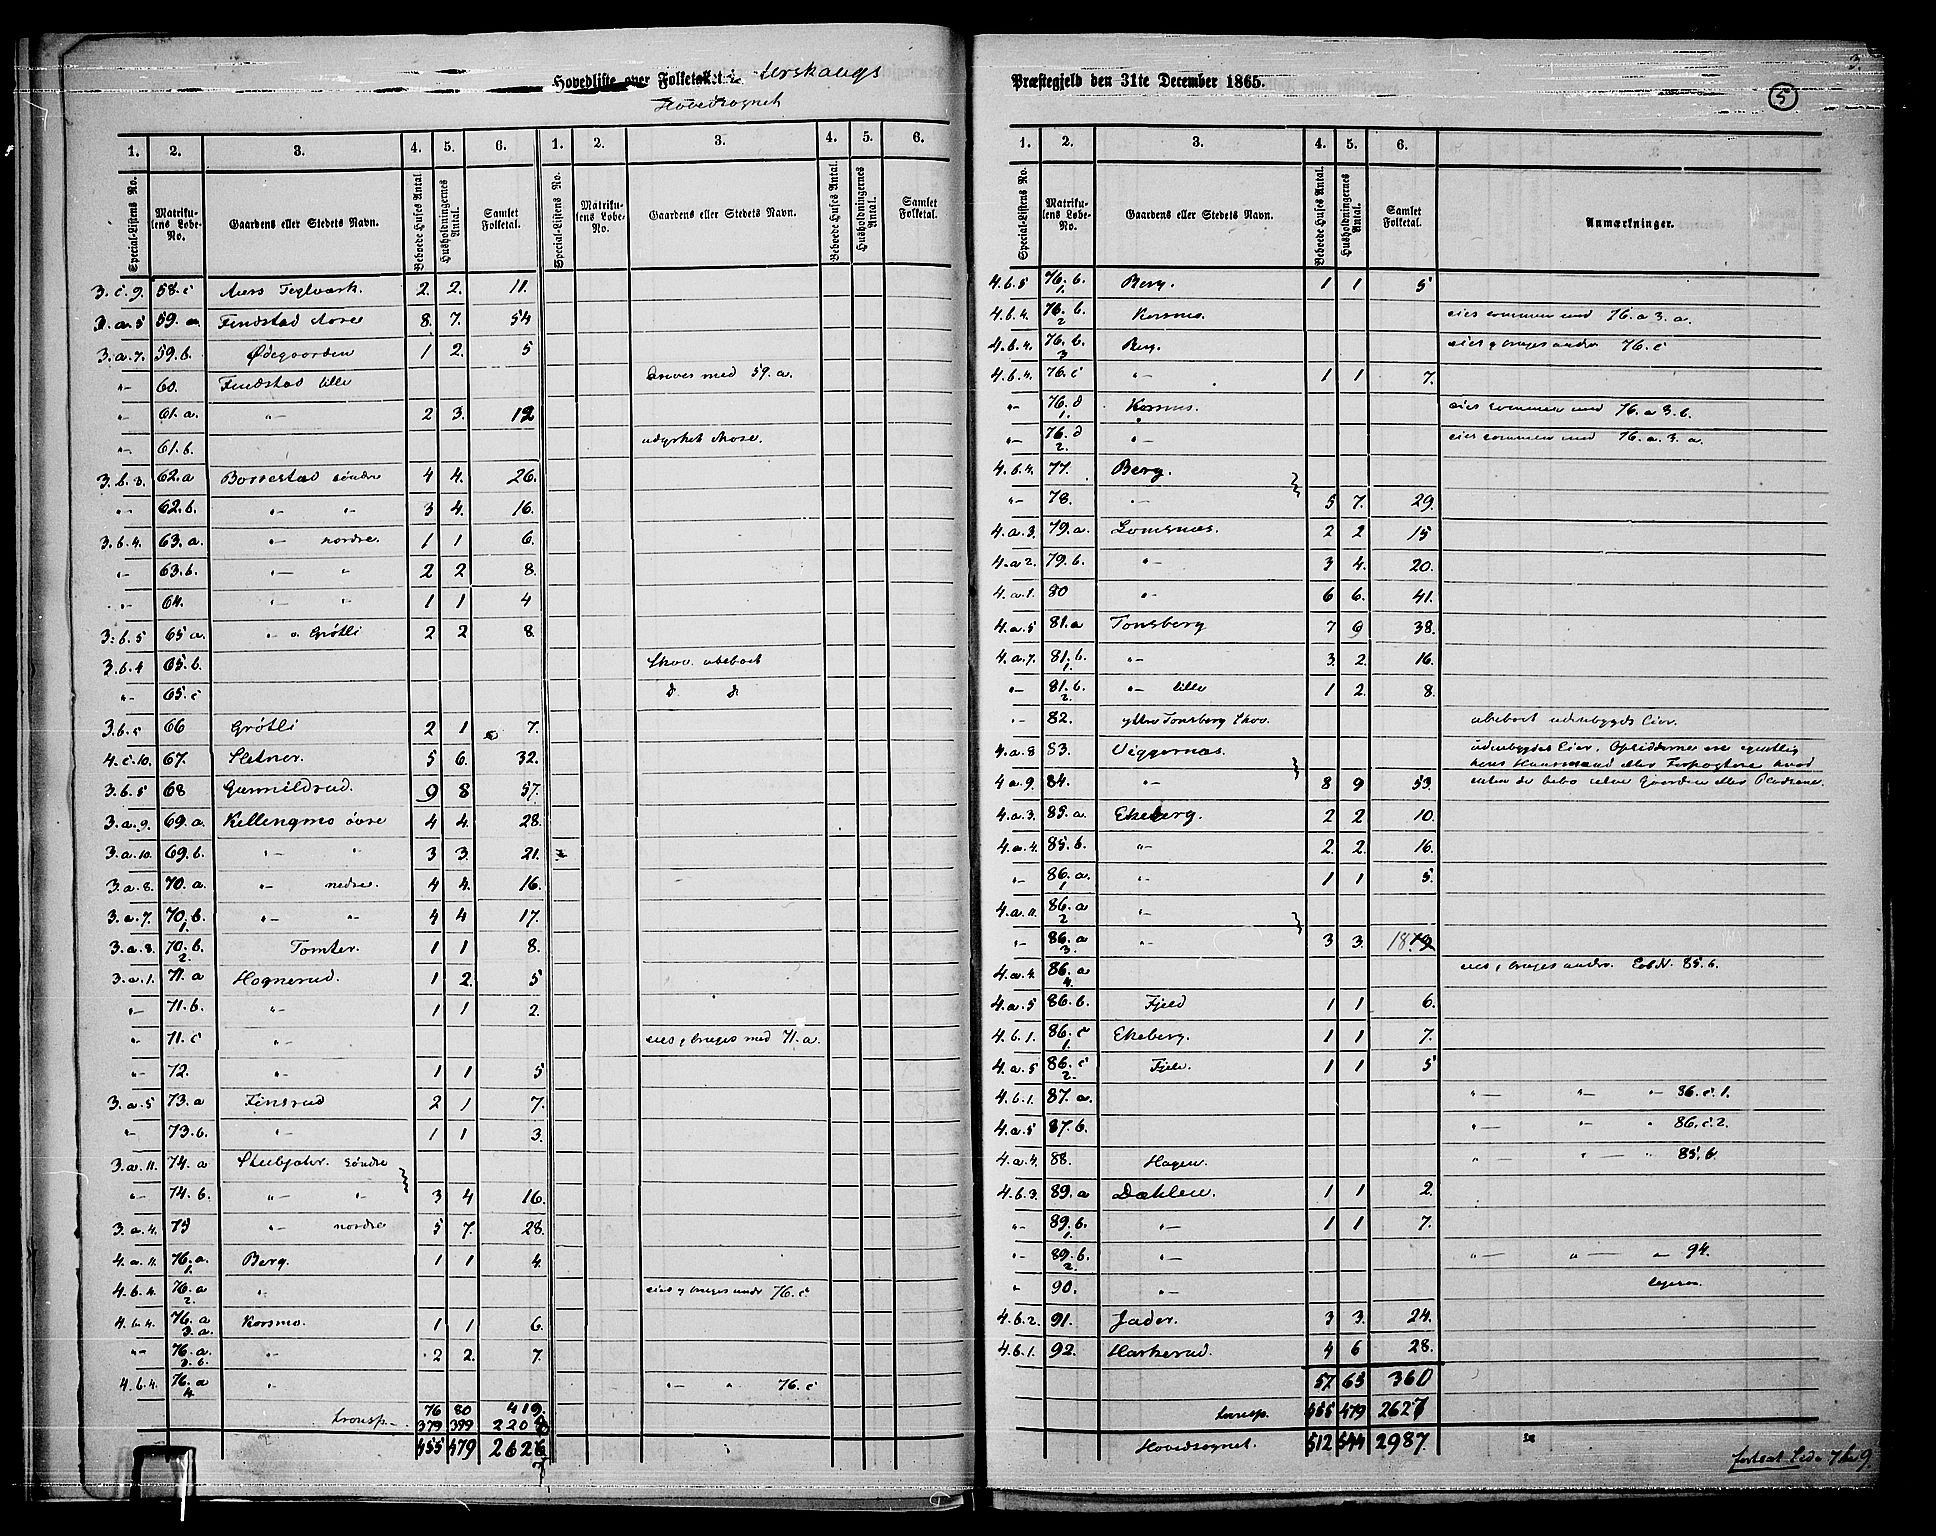 Hovedliste over Folketallet i Urskougs
Hovedsognet
1. 2. 3. 4. 5. 6. 1. 2. 3. 4. 5. 6.
Special-Listens No. Matrikulens Løbe-No. Gaardens eller Stedets Navn. Beboede Huses Antal. Husholdningernes Antal. Samlet Folketal. Special-Listens No. Matrikulens Løbe-No. Gaardens eller Stedets Navn. Beboede Huses Antal. Husholdningernes Antal. Samlet Folketal.
3.c.9. 58.c Aurs Teglværk. 2. 2. 11.
3.a.5 59.a. Findstad Nore 8. 7. 54
3.a.7. 59.b. Ødegaarden 1 2. 5
"- 60. Findstad lille drives med 59.a.
"- 61.a. "- 2 3. 12
"- 61.b. udyrket Mose.
3.b.3. 62.a Borrestad søndre 4 4. 26.
"- 62.b. "- "- 3 4. 16.
3.b.4. 63.a. "- nordre. 1 1 6.
"- 63.b. "- " 2 2 8.
"- 64. "- " 1 1 4
3.b.5 65 a. "- " Grötli 2 2 8.
3.b.4 65.b. Skov. ubeboet
"- 65.c d. d.
3.b.5 66 Grötli 2 1 7.
4.c.10. 67. Sletner. 5 6. 32.
3.b.5 68 Gunnildrud. 9 8 57.
3.a.9. 69.a. Killingmo övre 4 4. 28.
3.a.10. 69.b. "- " 3 3. 21.
3.a.8. 70.a. "- nedre. 4 4. 16.
3.a.7. 70.b.1. "- "- 4 4 17.
3.a.8. 70.b.2 Tomter. 1 1 8.
3.a.1. 71.a Hognerud. 1 2. 5
"- 71.b. "- 1 1 2.
"- 71.c "- eies og bruges med 71.a.
"- 72. "- 1 1 5
3.a.5 73.a Finsrud 2 1 7.
"- 73.b. "- 1 1 3.
3.a.11. 74.a søndre
"- 74.b. "- "- 3 4 16.
3.a.4. 75 "- nordre 5 7. 28.
4.a.11. 76.a.1. Berg. 1 1 4.
4.b.4. 76.a2. "- eies og bruges under 76.c.
4.b.4. 76.a3.a. Korsmo. 1 1 6.
"- 76.a.3.b. "- 2 2. 7.
4.b.4. 76.a4 "- "- " 76.c
76 80 419.
transp. 379 399 2208
455 479 2626
7
Præstegjeld den 31te December 1865.
3.
5
1. 2. 3. 4. 5. 6.
Special-Listens No. Matrikulens Løbe-No. Gaardens eller Stedets Navn. Beboede Huses Antal. Husholdningernes Antal. Samlet Folketal. Anmærkninger.
4.b.5 76.b.1. Berg. 1 1 5
4.b.4. 76.b.2 Korsmo. eies sammen med 76.a 3.a.
4.b.4. 76.b.3 Berg. eies og bruges under 76.c
4.b.4. 76.c "- 1 1 7.
"- 76.d1. Korsmo. eies sammen med 76.a 3.b.
"- 76.d2. "- eies sammen med 76.a.3.a.
4.b.4. 77. Berg.
"- 78. "- 5 7. 29.
4.a.3. 79.a. Lomsnæs. 2 2 15
4.a2. 79.b. "- 3 4. 20.
4.a.1. 80 "- 6 6. 41.
4.a.5 81.a Tonsberg 7 9 38.
4.a.7. 81.b.1. "- 3 2. 16.
"- 81.b.2. "- lille 1 2. 8.
"- 82. yttre Tonsberg Skov. ubeboet udenbygds Eier.
4.a.8 83. Viggernæs. udenbygdes Eier. Opsidderne ere egentlig
hans Huusmænd eller Forpagtere hvad
4.a.9. 84. "- 8 9 53. enten de bebo selve Gaarden eller Pladsene.
4.a.3. 85.a. Ekeberg. 2 2 10.
4.a.4. 85.b. "- 2 2. 16.
"- 86.a.1 "- 1 1 5.
4.a.11. 86.a2 "-
"- 86.a3. "- 3 3. 18
4.a.4. 86.a4. eies og bruges under LobN. 85.b.
4.a.5 86.b. Fjeld 1 1 6.
4.b.1. 86.c1. Ekeberg. 1 1 7.
4.a.5 86.c2. Fjeld. 1 1 5
4.b.1. 87.a. "- "- "- 86.c.1.
4.a.5 87.b. "- "- " 86.c.2.
4.a.4. 88. Hagen. "- "- "- 85.b.
4.b.3. 89.a Dæhlen. 1 1 2.
"- 89.b.1. "- 1 1 7.
"- 89.b.2. "- "- "- " 94.
" 90. "- ligesaa
4.b.2. 91. Jader. 3 3. 24.
4.b.1. 92. Harkerud. 4 6 28.
57 65 360
transp. 455 479 2627
Hovedsognet. 512 544 2987
fortsat Side 7 &amp; 9.